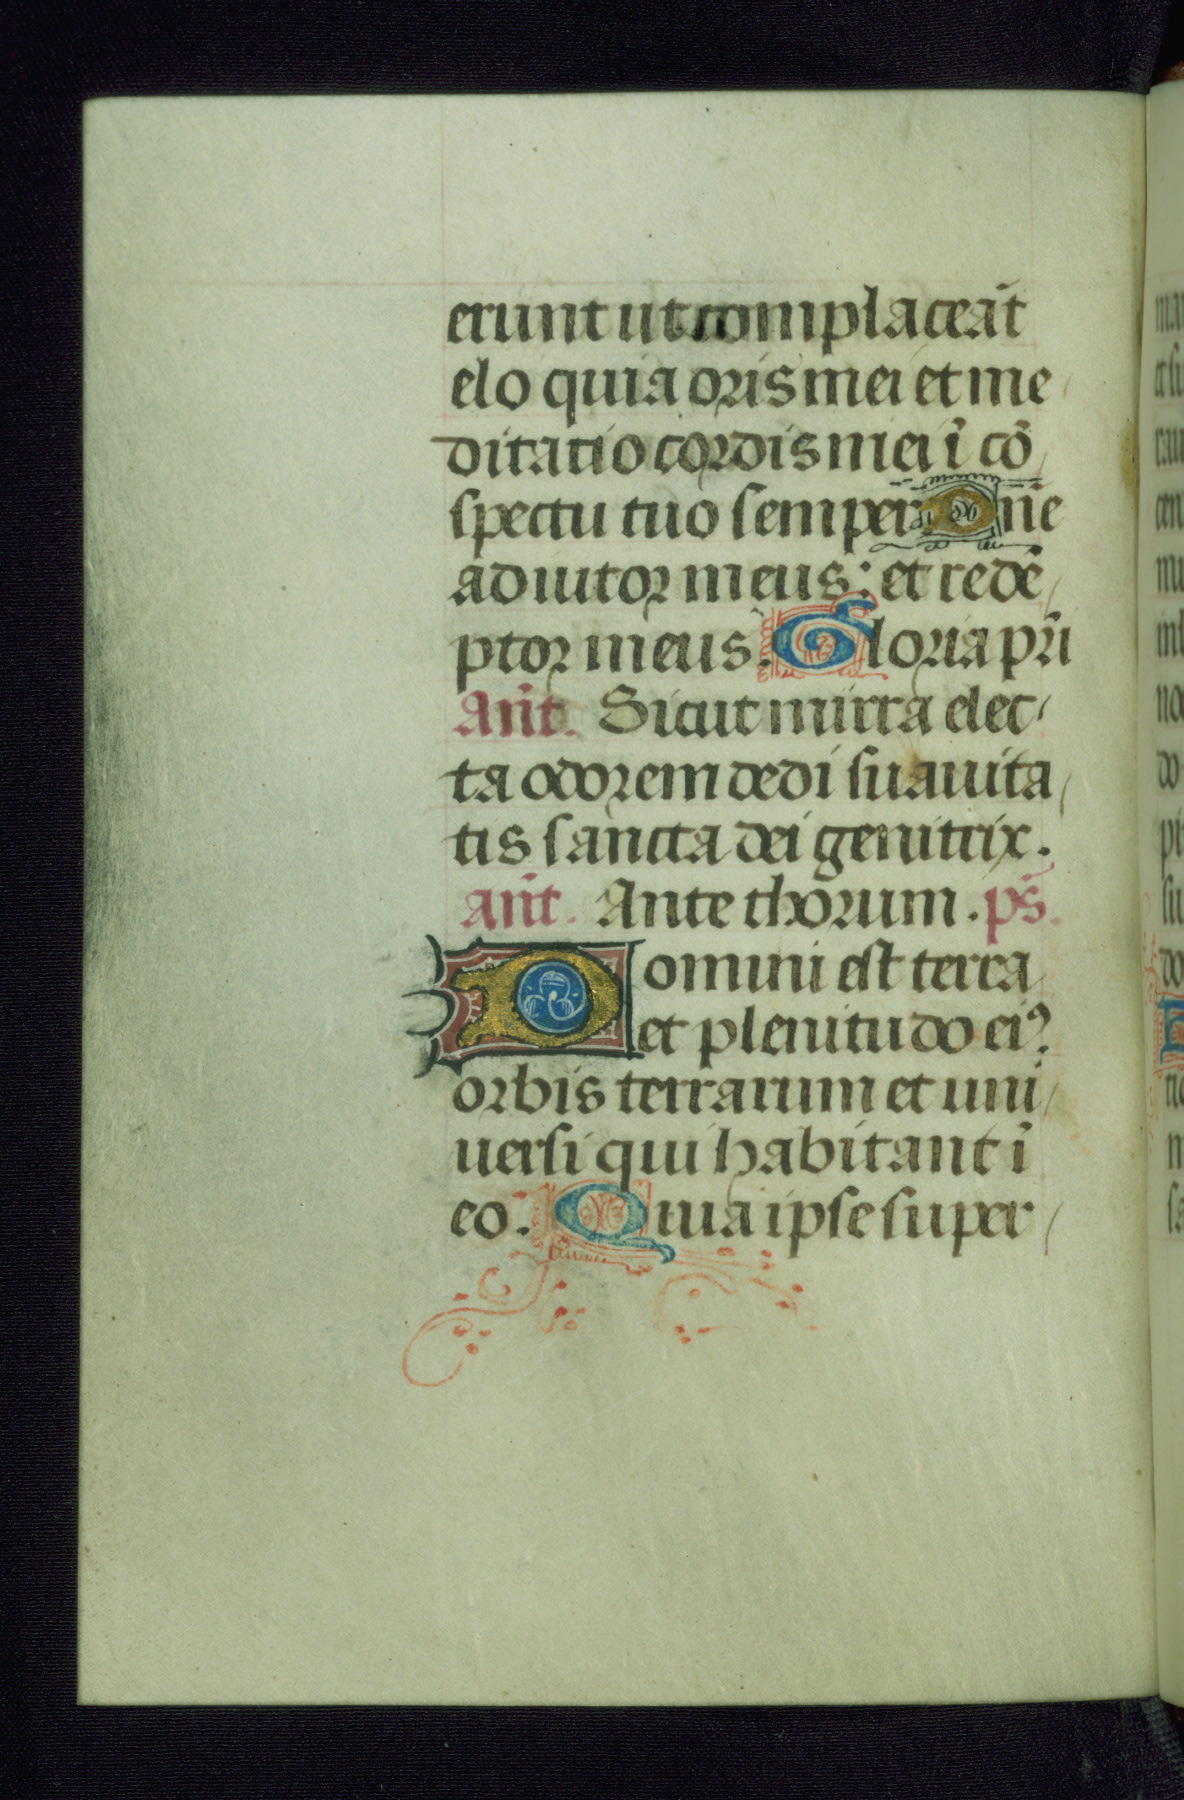 erunt ut complaceāt
elo quia oris mei et me
ditatio cordis mei ī cō
spectu tuo semper Dn̄e
adiutor meus: et redē
ptor meus. Gloria pr̄i
An̄t. Sicut mirra elec
ta odorem dedi suauita
tis sancta dei genitrix.
an̄t. Ante thorum. ps̄.
Domini est terra
et plenitudo eiꝰ
orbis terrarum et uni
uersi qui habitant ī
eo. Quia ipse super